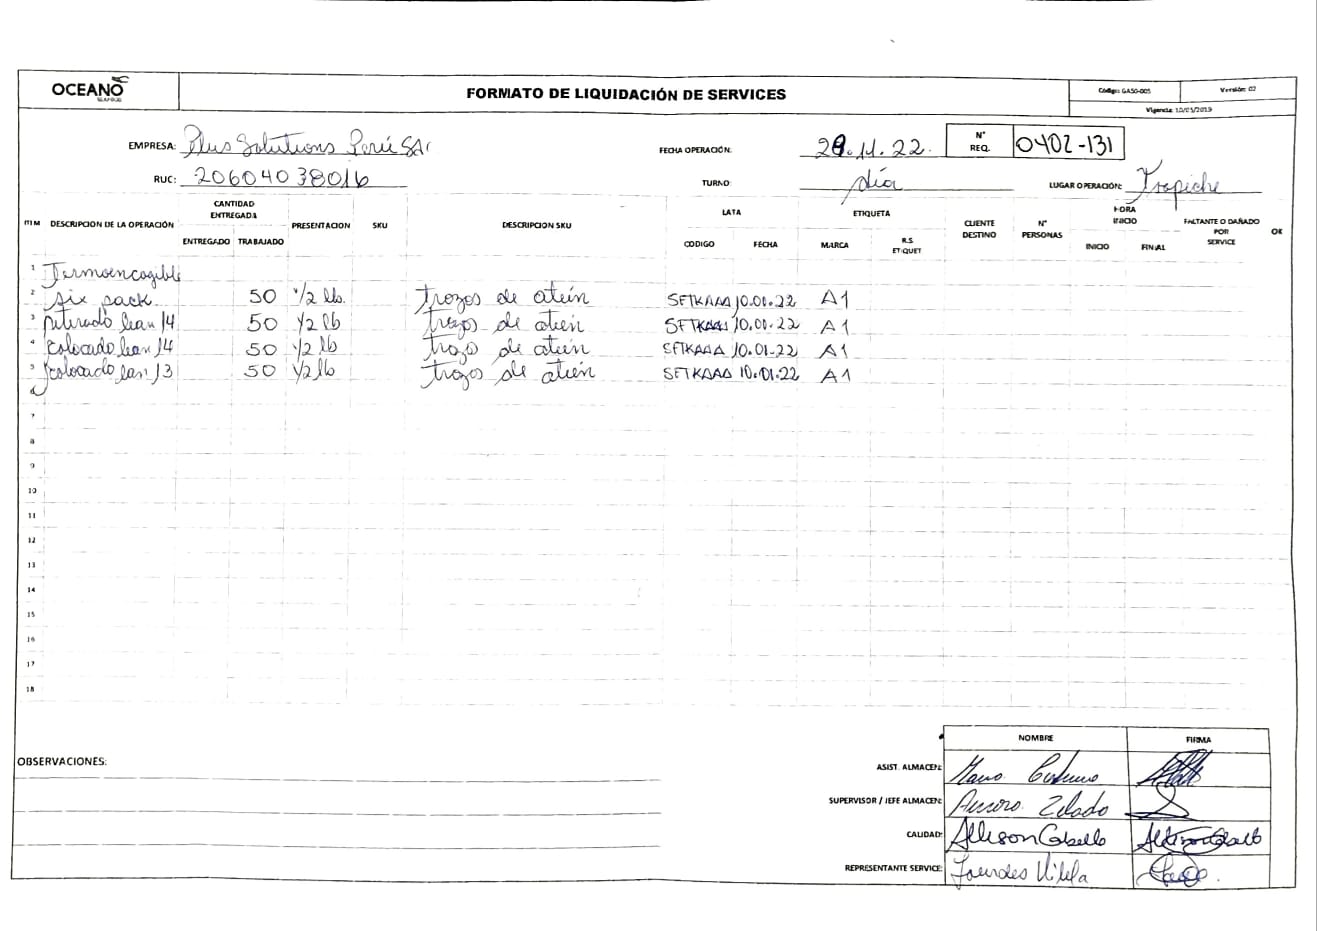 OCEANO
SEAFOOD
FORMATO DE LIQUIDACIÓN DE SERVICES
Código: GASO-005
Versión: 02
Vigencia: 10/05/2019
EMPRESA: Plus Solutions Perú SAC
FECHA OPERACIÓN: 29.11.22.
N° REQ. 0402-131
RUC: 20604038016
TURNO: día
LUGAR OPERACIÓN: Tropiche
ITEM DESCRIPCION DE LA OPERACIÓN CANTIDAD ENTREGADA PRESENTACION SKU DESCRIPCION SKU LATA ETIQUETA CLIENTE DESTINO N° PERSONAS HORA INICIO FALTANTE O DAÑADO POR SERVICE OK
ENTREGADO TRABAJADO CODIGO FECHA MARCA R.S ETIQUET INICIO FINAL
1 Termoencogible
2 six pack 50 1/2 lb. trozos de atún 10.01.22 A1
3 retirado 14 50 1/2 lb trozos de atún 10.01.22 A1
4 colocado 14 50 1/2 lb trozo de atún 10.01.22 A1
5 colocado 13 50 1/2 lb trozos de atún 10.01.22 A1
7
8
9
10
11
12
13
14
15
16
17
18
OBSERVACIONES:
NOMBRE FIRMA
ASIST. ALMACEN:
SUPERVISOR / JEFE ALMACEN: Zelado
CALIDAD: Allison Cabello
REPRESENTANTE SERVICE: Lourdes Vilela